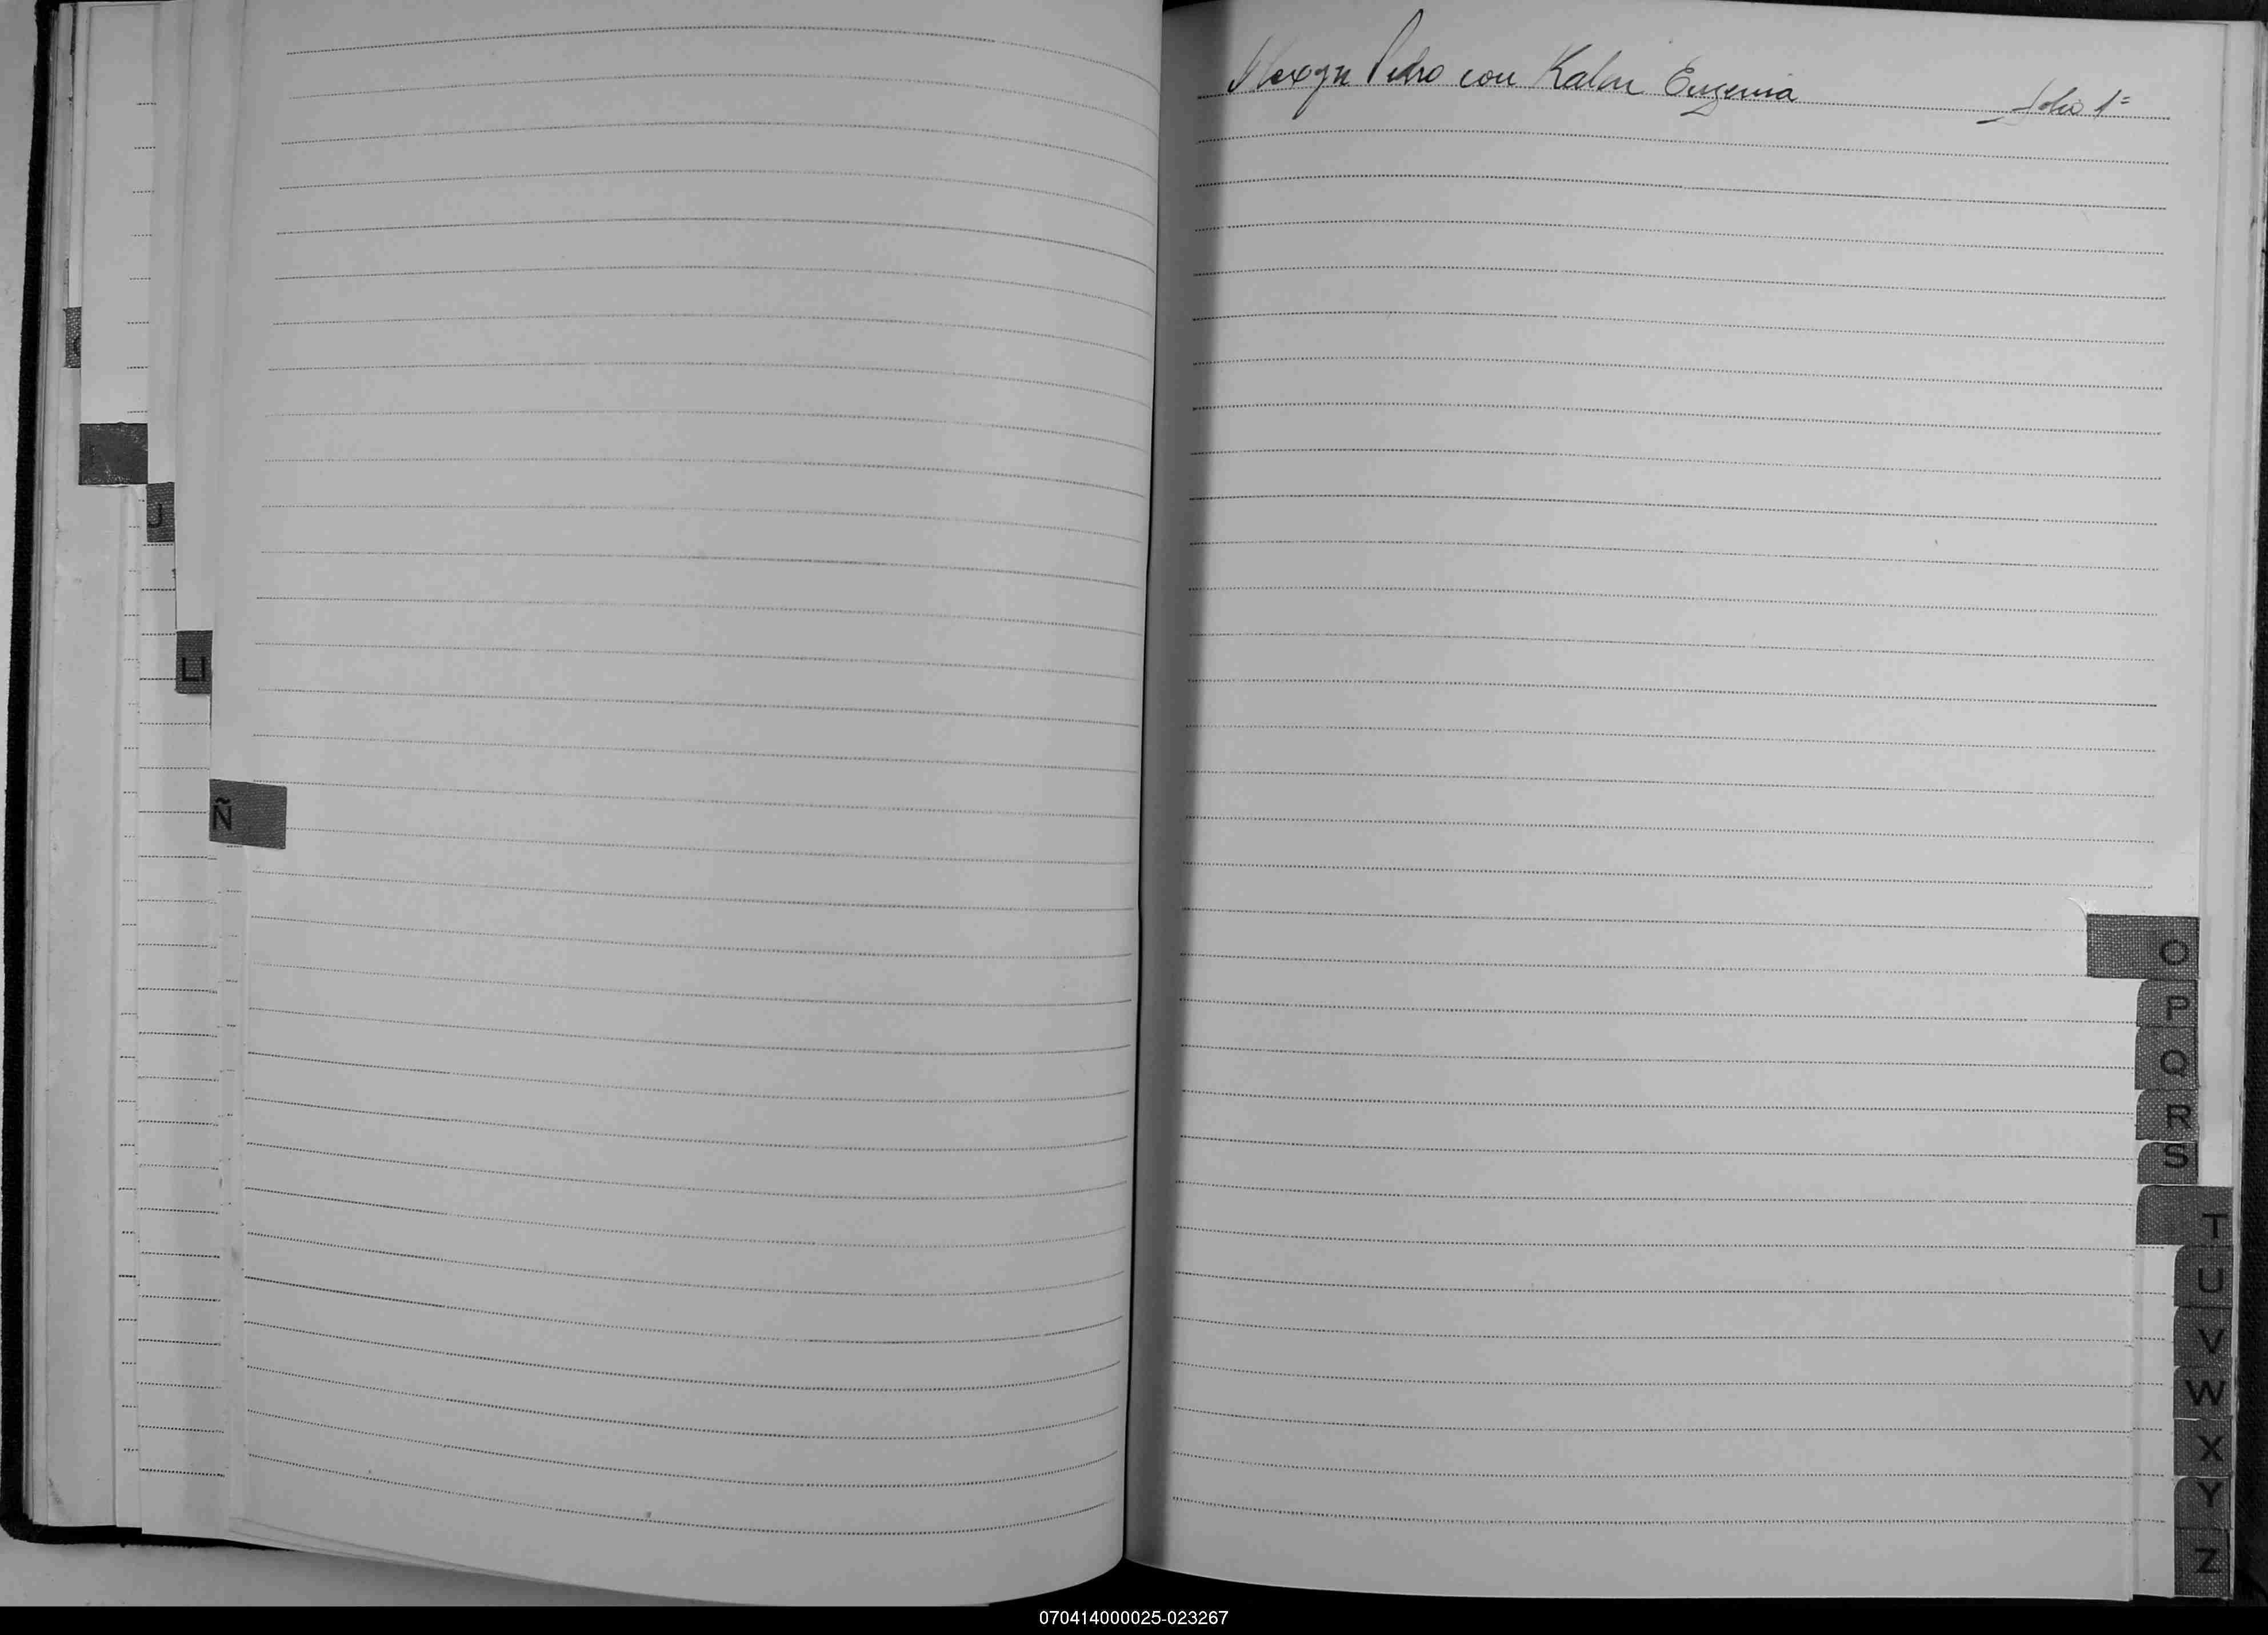 Pedro con Kalm Eugenia folio 1=
J
Ll
Ñ
O
P
Q
R
S
T
U
V
W
X
Y
Z
070414000025-023267